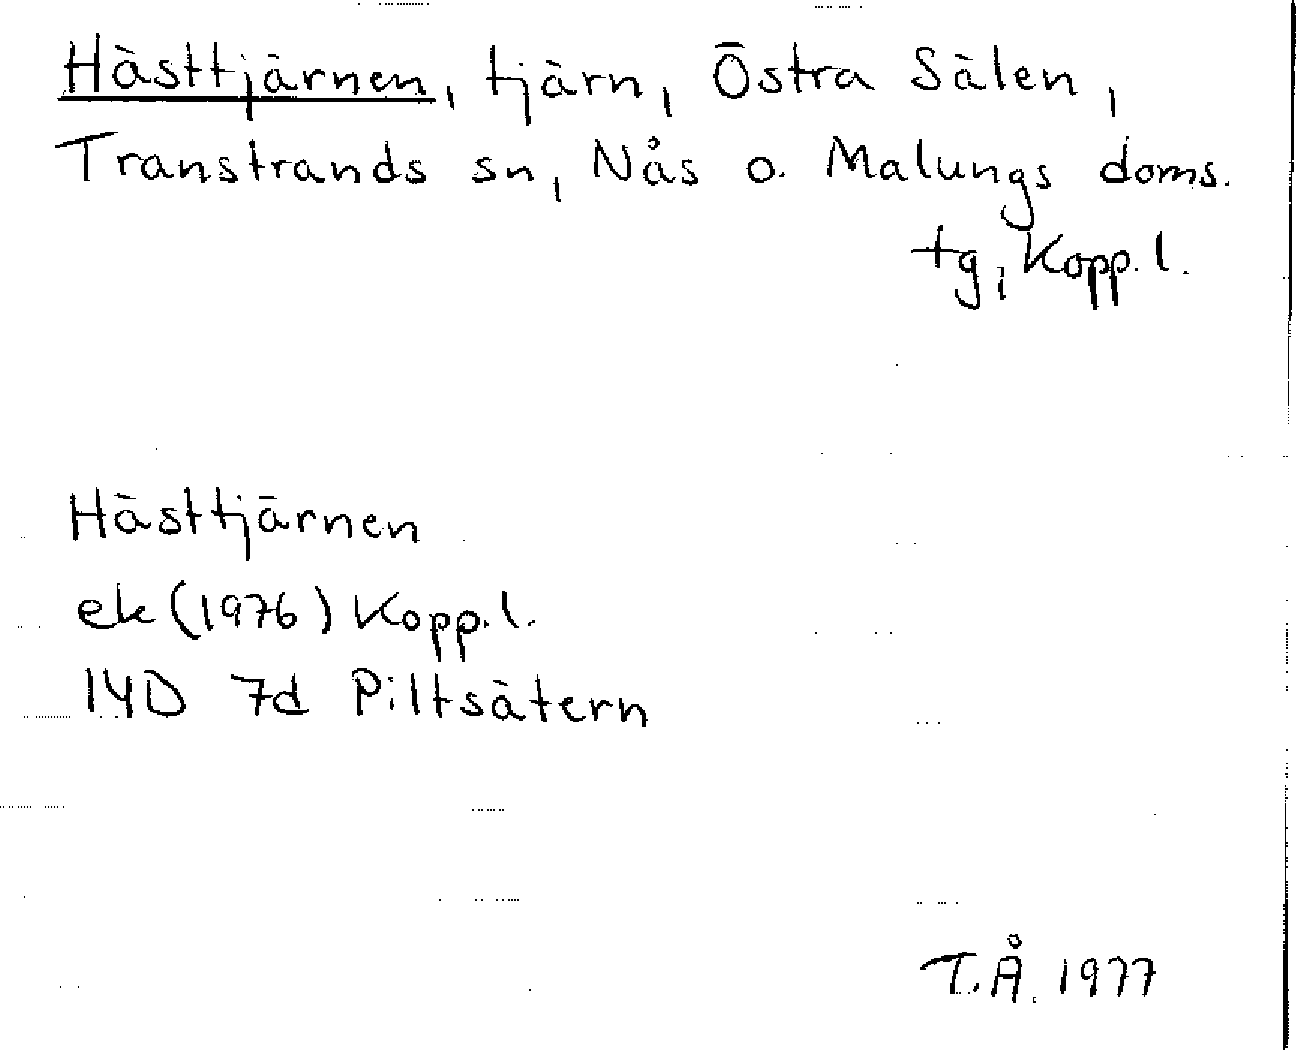 Hästtjärnen, tjärn, Östra Sälen,
Transtrands sn, Nås o. Malungs doms.
tg, Kopp. l.
Hästtjärnen
ek (1976) Kopp. l.
14D 7d Piltsätern
T.Å. 1977